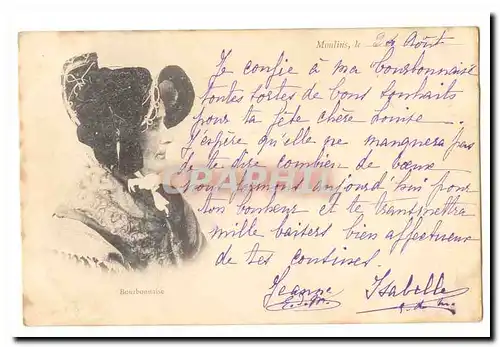 Moulins, le 24 Août
Je confie à ma bourbonnaise
toutes sortes de bons souhaits
pour ta fête chère Louise
J'espère qu'elle ne manquera pas
de te dire combien de vœux
nous formons aujourd'hui pour
ton bonheur et te transmettra
mille baisers bien affectueux
de tes cousines.
Jeanne Isabelle
CPARAMA
Bourbonnaise